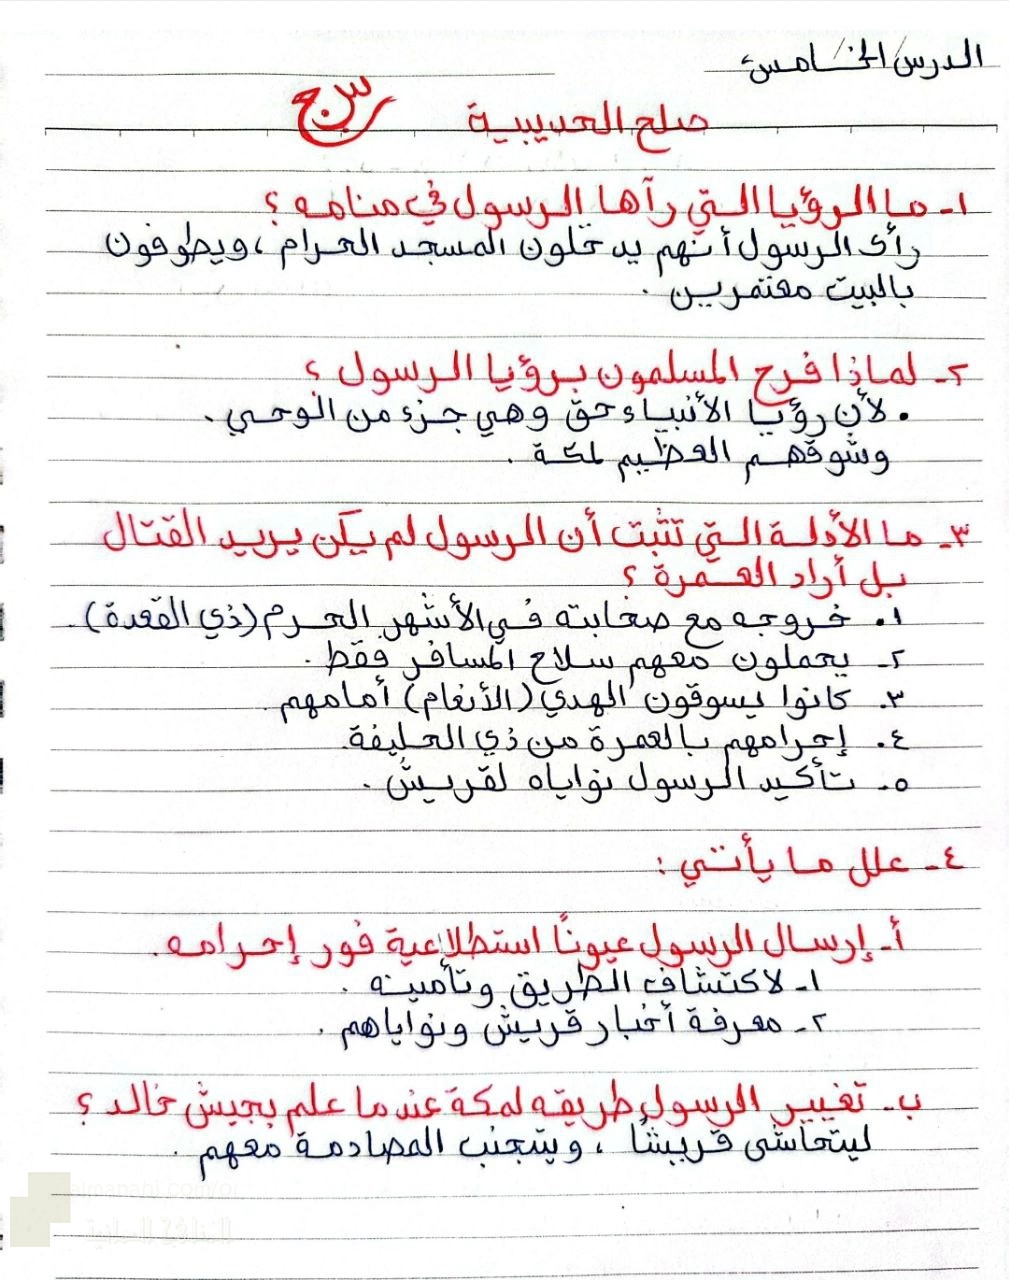 الدرس الخامس
صلح الحديبية
س ج
١- ما الرؤيا التي رآها الرسول في منامه ؟
رأى الرسول أنهم يدخلون المسجد الحرام ، ويطوفون
بالبيت معتمرين .
٢- لماذا فرح المسلمون برؤيا الرسول ؟
• لأن رؤيا الأنبياء حق وهي جزء من الوحي .
وشوقهم العظيم لمكة .
٣- ما الأدلة التي تثبت أن الرسول لم يكن يريد القتال
بل أراد العمرة ؟
١. خروجه مع صحابته في الأشهر الحرم (ذي القعدة) .
٢- يحملون معهم سلاح المسافر فقط .
٣. كانوا يسوقون الهدي (الأنعام) أمامهم .
٤. إحرامهم بالعمرة من ذي الحليفة.
٥- تأكيد الرسول نواياه لقريش .
٤- علل ما يأتي :
أ- إرسال الرسول عيونًا استطلاعية فور إحرامه .
١- لاكتشاف الطريق وتأمينه .
٢- معرفة أخبار قريش ونواياهم .
ب- تغيير الرسول طريقه لمكة عندما علم بجيش خالد ؟
ليتحاشى قريشًا ، ويتجنب المصادمة معهم .
almanahj.com/o